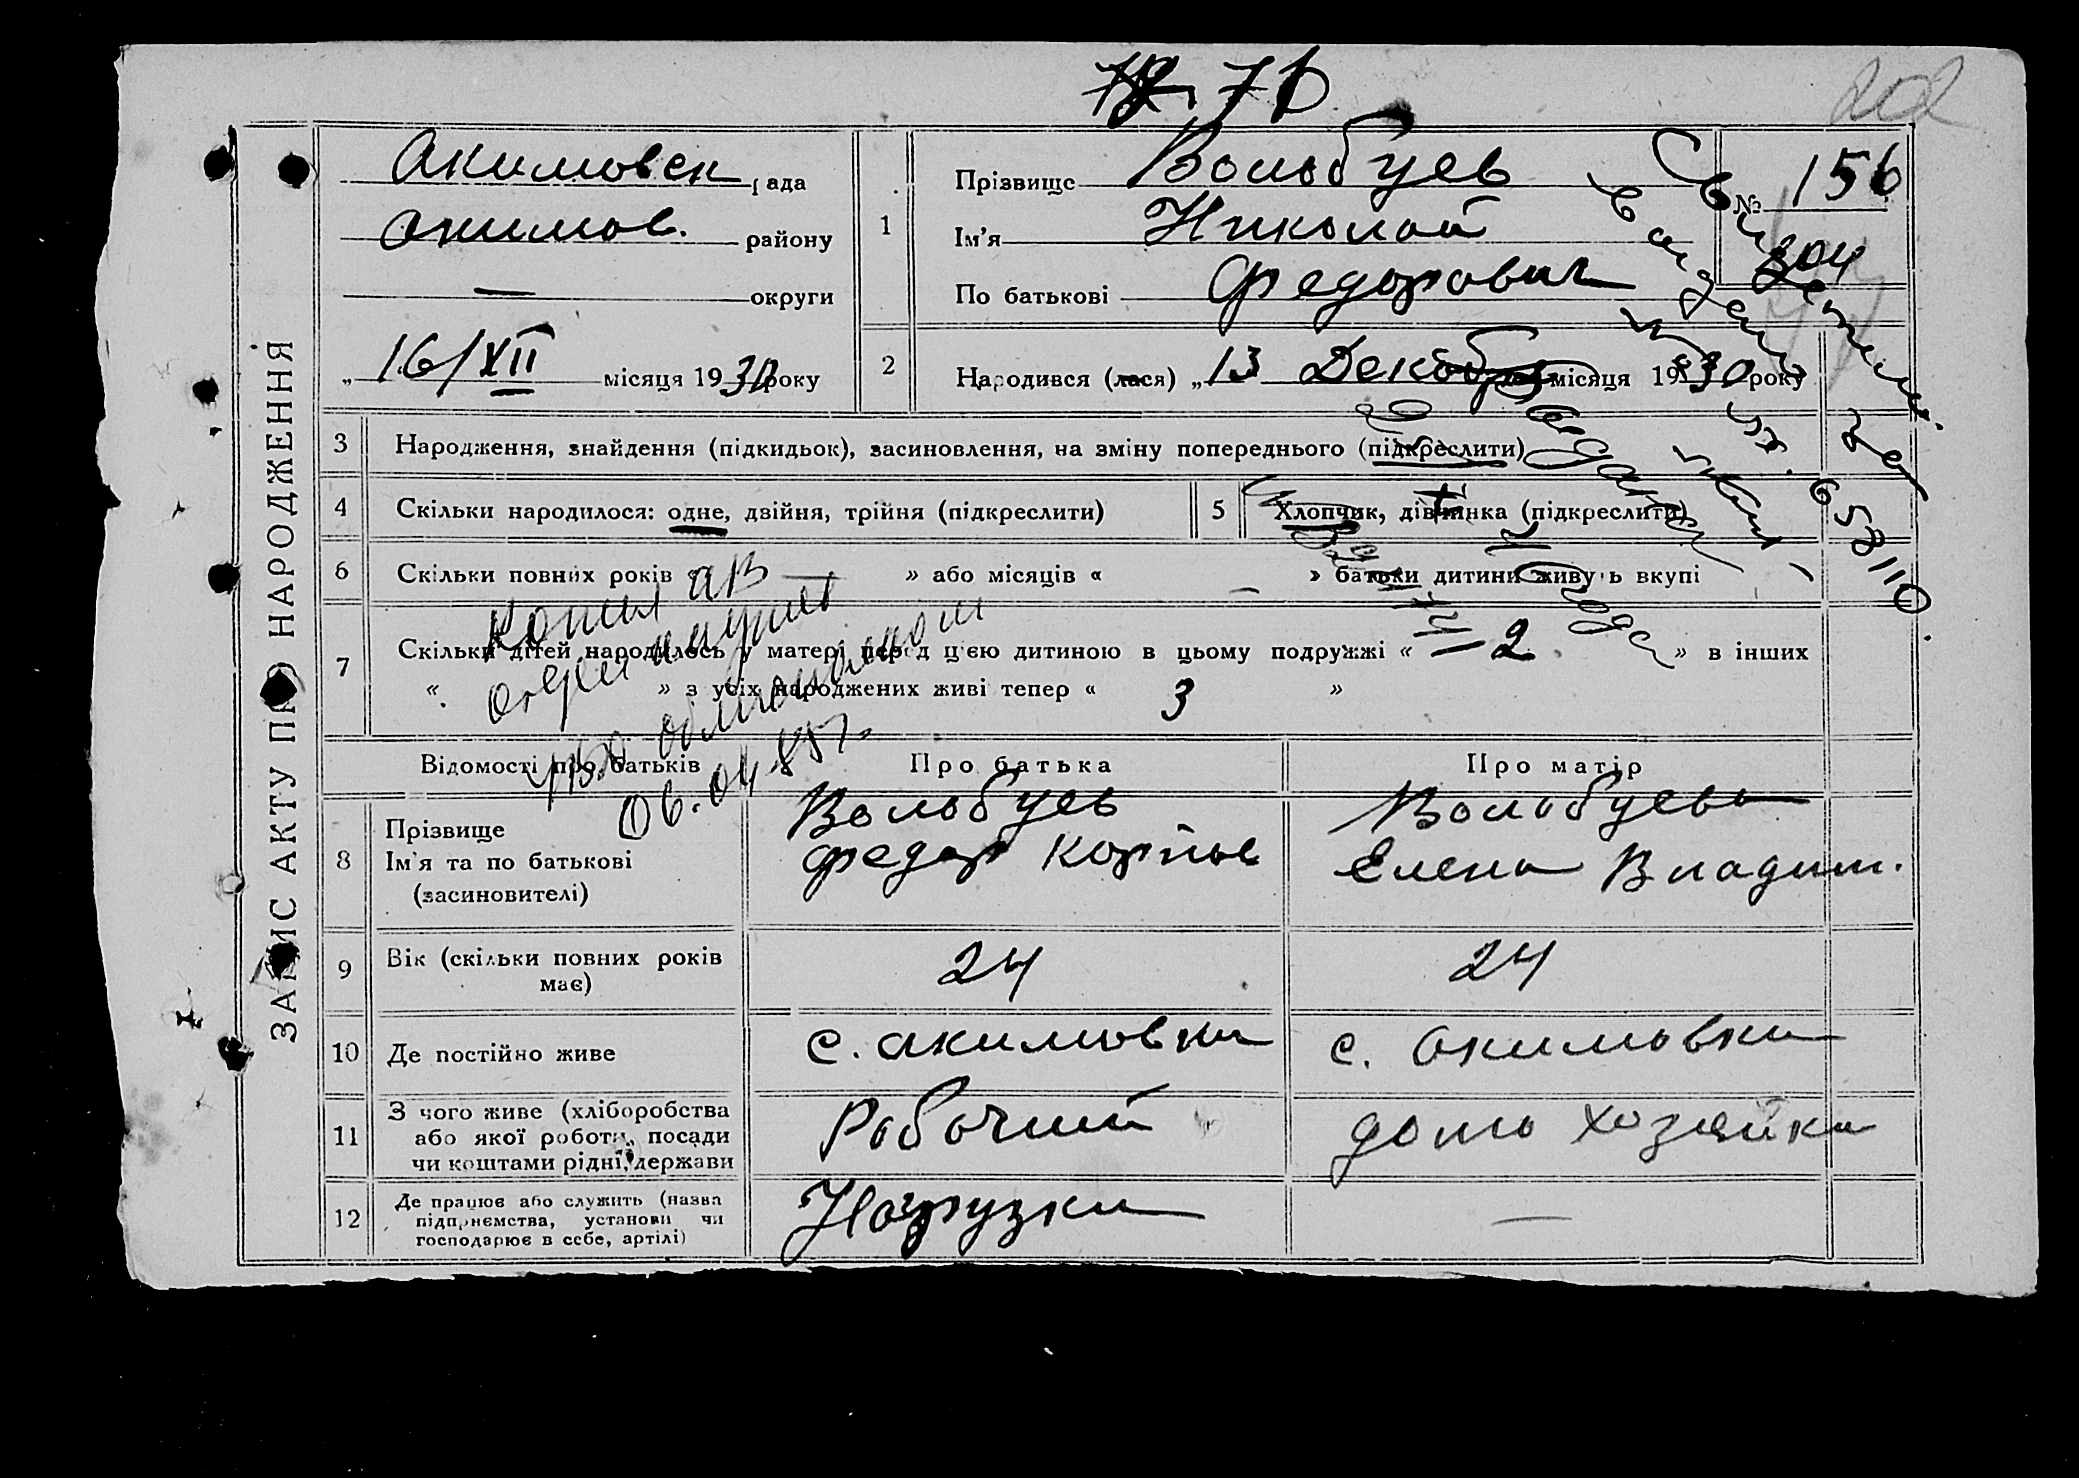 76
202
ЗАПИС АКТУ ПРО НАРОДЖЕННЯ
Акимовск рада
Акимов. району
— округи
„ 16/XII місяця 1930 року
1 Прізвище Вольбуев
Ім'я Николай
По батькові Федорович
№ 156
304
2 Народився (лася) „ 13 Декабря місяця 1930 року
3 Народження, знайдення (підкидьок), засиновлення, на зміну попереднього (підкреслити)
4 Скільки народилося: одне, двійня, трійня (підкреслити)
5 Хлопчик, дівчинка (підкреслити)
6 Скільки повних років « — » або місяців « — » батьки дитини живуть вкупі
7 Скільки дітей народилось у матері перед цією дитиною в цьому подружжі « — 2 » в інших
« » з усіх народжених живі тепер « 3 »
Свидетель.
выдано
658110.
Копия АВ
06.04.85 г.
Відомості про батьків Про батька Про матір
8 Прізвище
Ім'я та по батькові
(засиновителі)
Вольбуев
Федор Карпов
Вольбуева
Елена Владим.
9 Вік (скільки повних років
має)
24 24
10 Де постійно живе с. Акимовка с. Акимовка
11 З чого живе (хліборобства
або якої роботи, посади
чи коштами рідні, держави
Рабочий дома хозяйка
12 Де працює або служить (назва
підприємства, установи чи
господарює в себе, артілі)
—